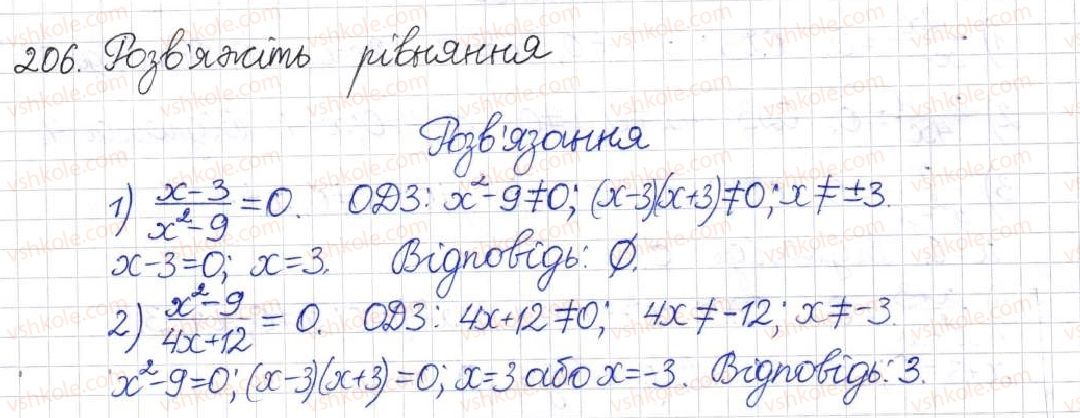 206. Розв'яжіть рівняння
Розв'язання
1) (x-3)/(x²-9) = 0. ОДЗ: x²-9≠0; (x-3)(x+3)≠0; x≠±3.
x-3=0; x=3. Відповідь: Ø.
2) (x²-9)/(4x+12) = 0. ОДЗ: 4x+12≠0; 4x≠-12; x≠-3.
x²-9=0; (x-3)(x+3)=0; x=3 або x=-3. Відповідь: 3.
vshkole.com